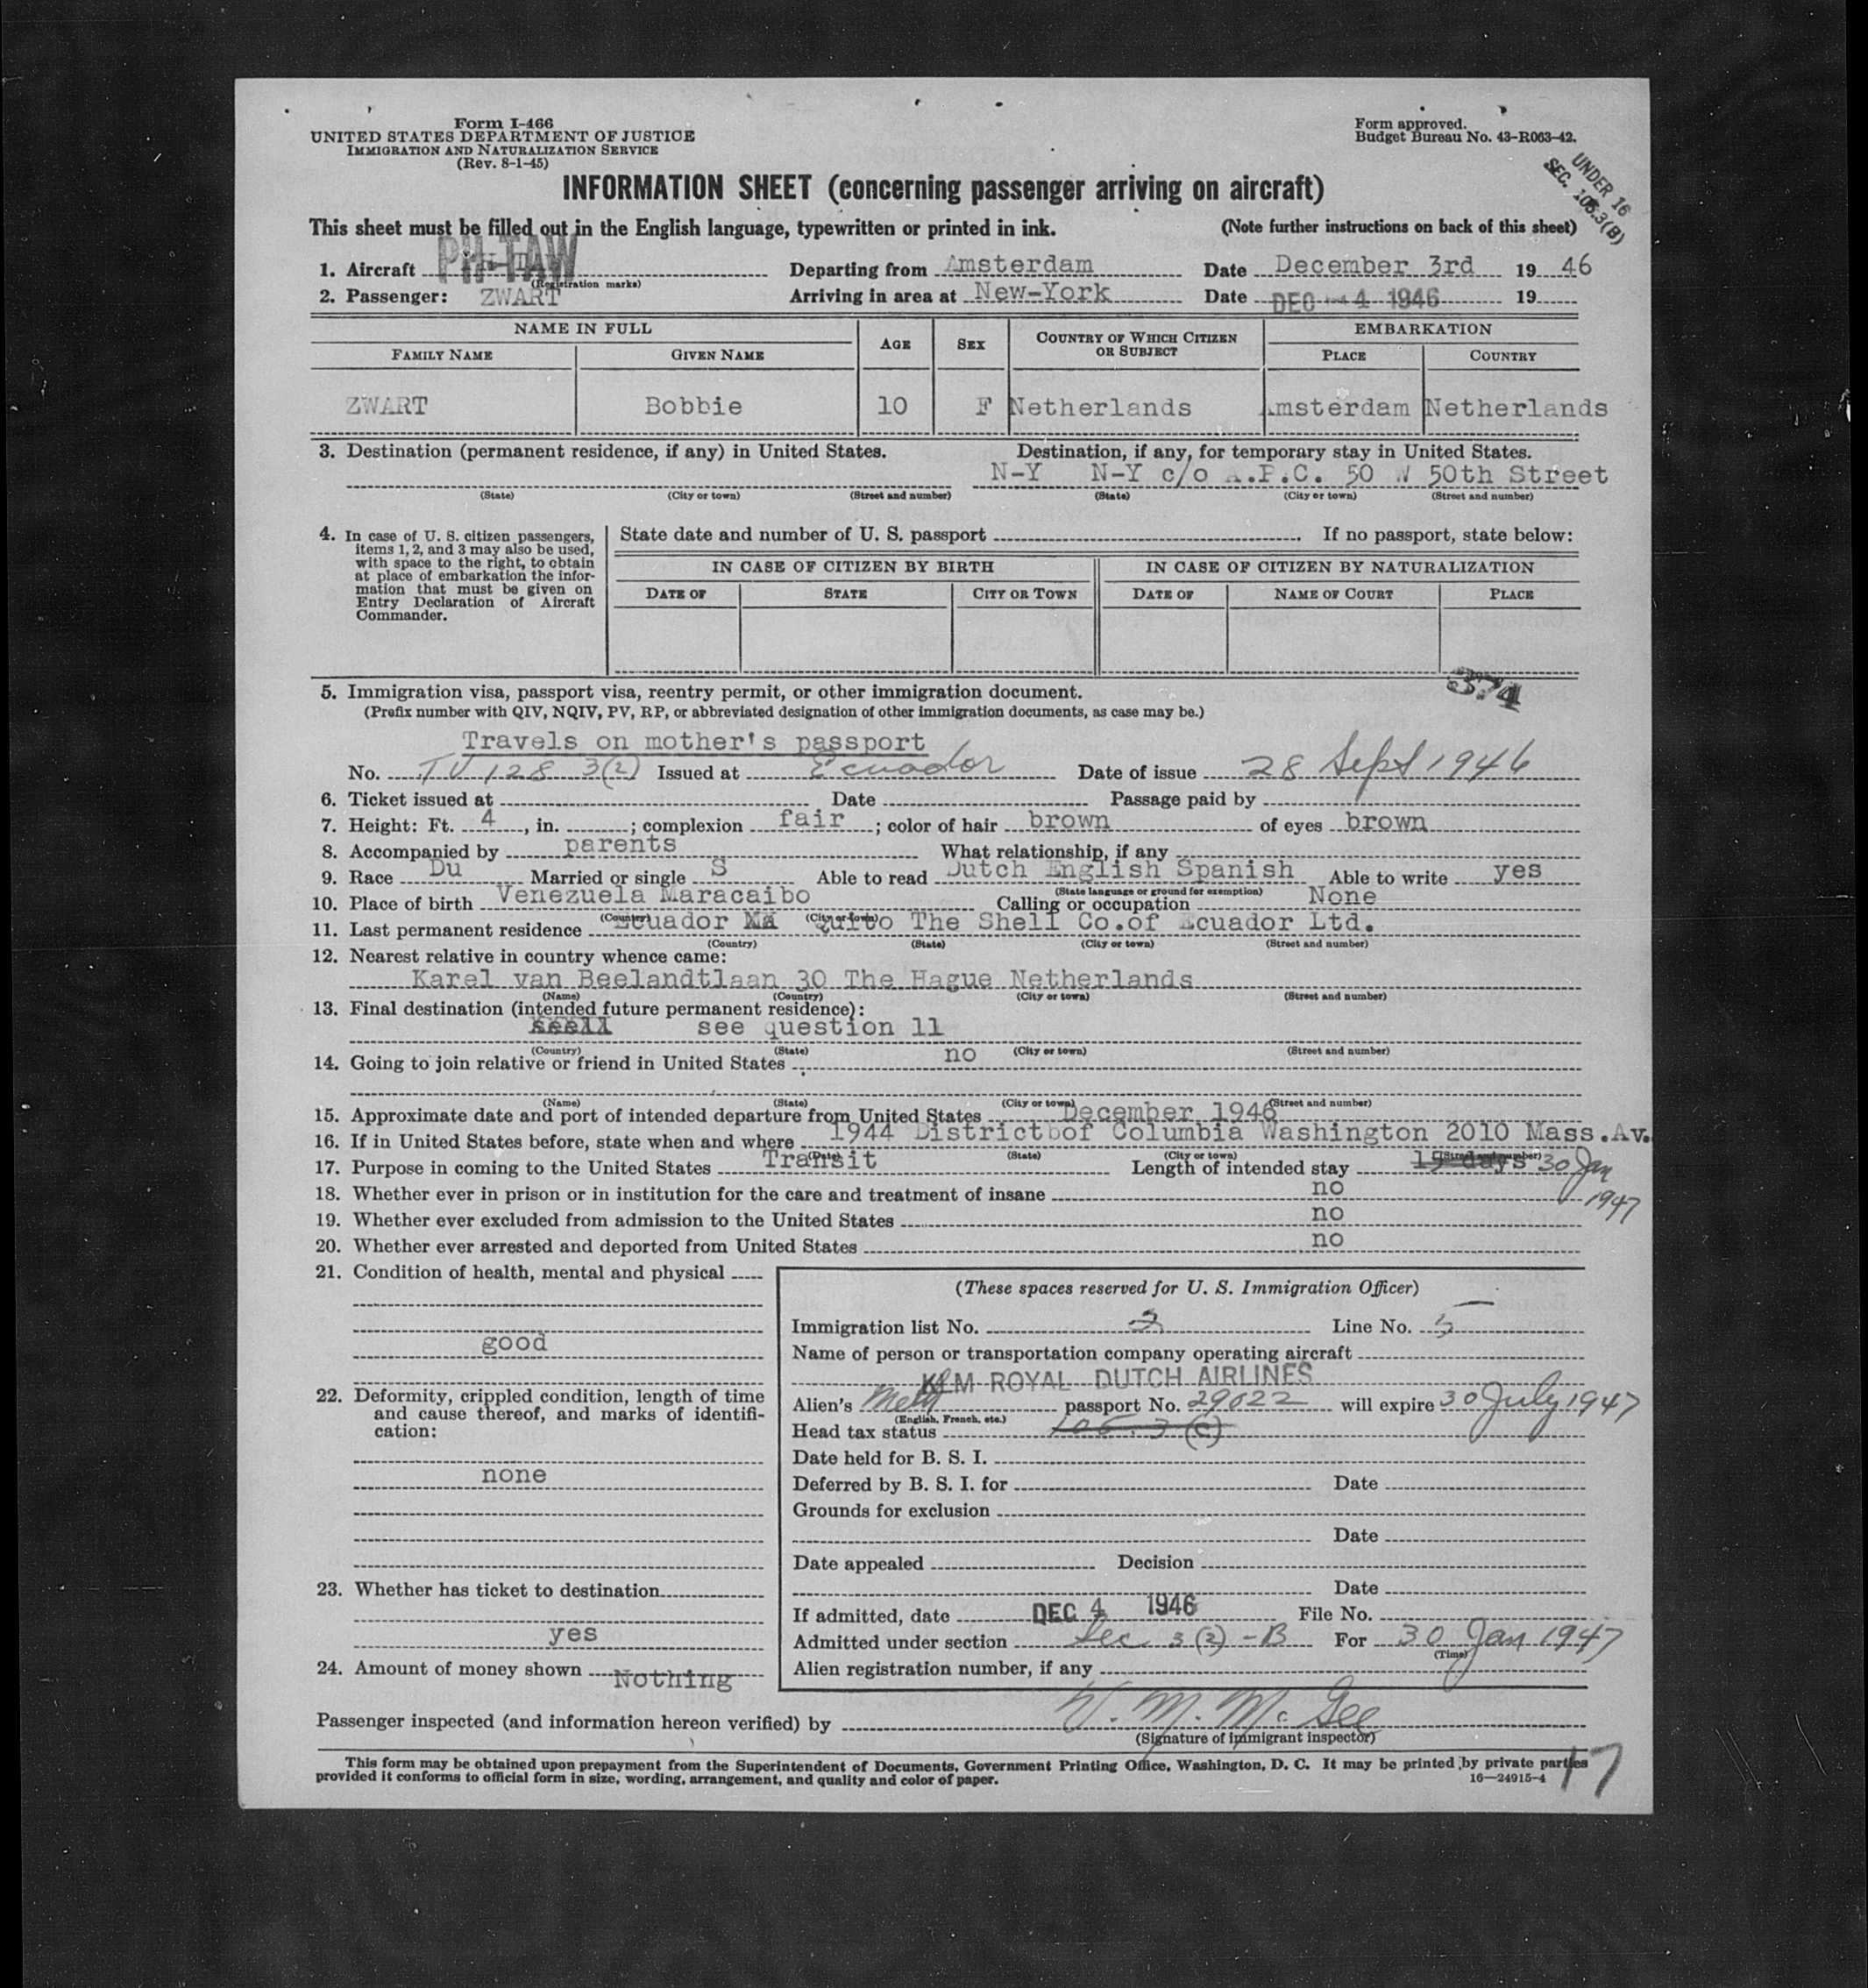 Form I-466
UNITED STATES DEPARTMENT OF JUSTICE
IMMIGRATION AND NATURALIZATION SERVICE
(Rev. 8-1-45)
Form approved.
Budget Bureau No. 43-R063-42.
UNDER 16
SEC. 105.3(B)
INFORMATION SHEET (concerning passenger arriving on aircraft)
This sheet must be filled out in the English language, typewritten or printed in ink. (Note further instructions on back of this sheet)
1. Aircraft PH-TAW (Registration marks) Departing from Amsterdam Date December 3rd 1946
2. Passenger: ZWART Arriving in area at New-York Date DEC 4 1946 19
NAME IN FULL AGE SEX COUNTRY OF WHICH CITIZEN OR SUBJECT EMBARKATION
FAMILY NAME GIVEN NAME PLACE COUNTRY
ZWART Bobbie 10 F Netherlands Amsterdam Netherlands
3. Destination (permanent residence, if any) in United States. Destination, if any, for temporary stay in United States.
N-Y N-Y c/o A.P.C. 50 W 50th Street
(State) (City or town) (Street and number) (State) (City or town) (Street and number)
4. In case of U. S. citizen passengers, items 1, 2, and 3 may also be used, with space to the right, to obtain at place of embarkation the information that must be given on Entry Declaration of Aircraft Commander.
State date and number of U. S. passport If no passport, state below:
IN CASE OF CITIZEN BY BIRTH IN CASE OF CITIZEN BY NATURALIZATION
DATE OF STATE CITY OR TOWN DATE OF NAME OF COURT PLACE
374
5. Immigration visa, passport visa, reentry permit, or other immigration document.
(Prefix number with QIV, NQIV, PV, RP, or abbreviated designation of other immigration documents, as case may be.)
Travels on mother's passport
No. TV 128 3(2) Issued at Ecuador Date of issue 28 Sept 1946
6. Ticket issued at Date Passage paid by
7. Height: Ft. 4, in. ; complexion fair; color of hair brown of eyes brown
8. Accompanied by parents What relationship, if any
9. Race Du Married or single S Able to read Dutch English Spanish Able to write yes
(State language or ground for exemption)
10. Place of birth Venezuela Maracaibo Calling or occupation None
(Country) (City or town)
11. Last permanent residence Ecuador Quito The Shell Co.of Ecuador Ltd.
(Country) (State) (City or town) (Street and number)
12. Nearest relative in country whence came:
Karel van Beelandtlaan 30 The Hague Netherlands
(Name) (Country) (City or town) (Street and number)
13. Final destination (intended future permanent residence):
see11 see question 11
(Country) (State) (City or town) (Street and number)
14. Going to join relative or friend in United States no
(Name) (State) (City or town) (Street and number)
15. Approximate date and port of intended departure from United States December 1946
16. If in United States before, state when and where 1944 Districtbof Columbia Washington 2010 Mass.Av.
(Date) (State) (City or town) (Street and number)
17. Purpose in coming to the United States Transit Length of intended stay 15 days 30 Jan 1947
18. Whether ever in prison or in institution for the care and treatment of insane no
19. Whether ever excluded from admission to the United States no
20. Whether ever arrested and deported from United States no
21. Condition of health, mental and physical
good
22. Deformity, crippled condition, length of time and cause thereof, and marks of identification:
none
23. Whether has ticket to destination
yes
24. Amount of money shown Nothing
(These spaces reserved for U. S. Immigration Officer)
Immigration list No. 2 Line No. 5
Name of person or transportation company operating aircraft
KLM ROYAL DUTCH AIRLINES
Alien's Neth passport No. 29022 will expire 30 July 1947
(English, French, etc.)
Head tax status 105.3 (C)
Date held for B. S. I.
Deferred by B. S. I. for Date
Grounds for exclusion
Date
Date appealed Decision
Date
If admitted, date DEC 4 1946 File No.
Admitted under section Sec 3(2)-B For 30 Jan 1947
(Time)
Alien registration number, if any
Passenger inspected (and information hereon verified) by W. M. McGee
(Signature of immigrant inspector)
This form may be obtained upon prepayment from the Superintendent of Documents, Government Printing Office, Washington, D. C. It may be printed by private parties
provided it conforms to official form in size, wording, arrangement, and quality and color of paper. 16—24915-4
17